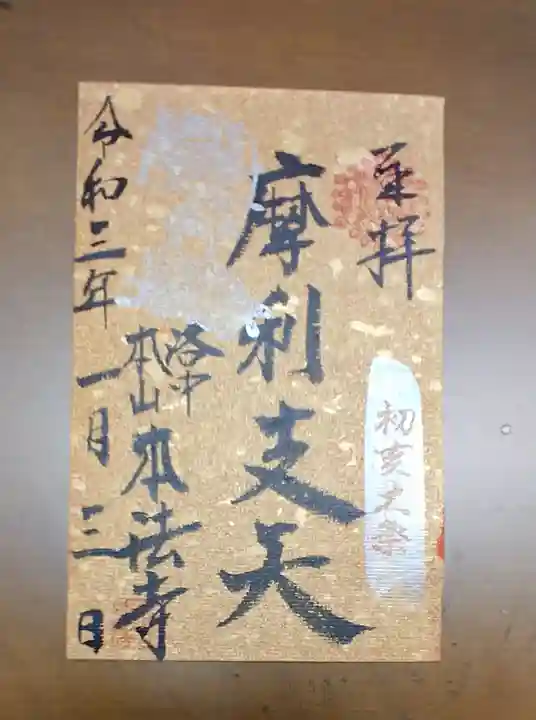 奉拝
初亥大祭
摩利支天
洛中
本山 本法寺
令和三年 一月 三日